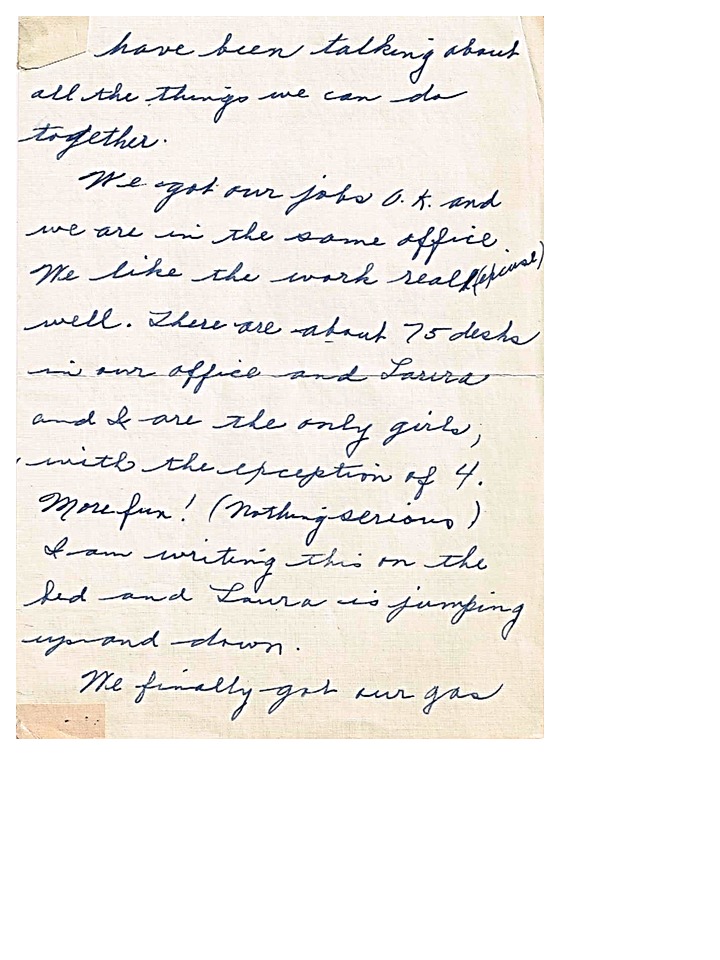 have been talking about
all the things we can do
together.
We got our jobs O.K. and
we are in the same office.
We like the work real (excuse)
well. There are about 75 desks
in our office and Laura
and I are the only girls,
with the exception of 4.
More fun! (Nothing serious)
I am writing this on the
bed and Laura is jumping
up and down.
We finally got our gas